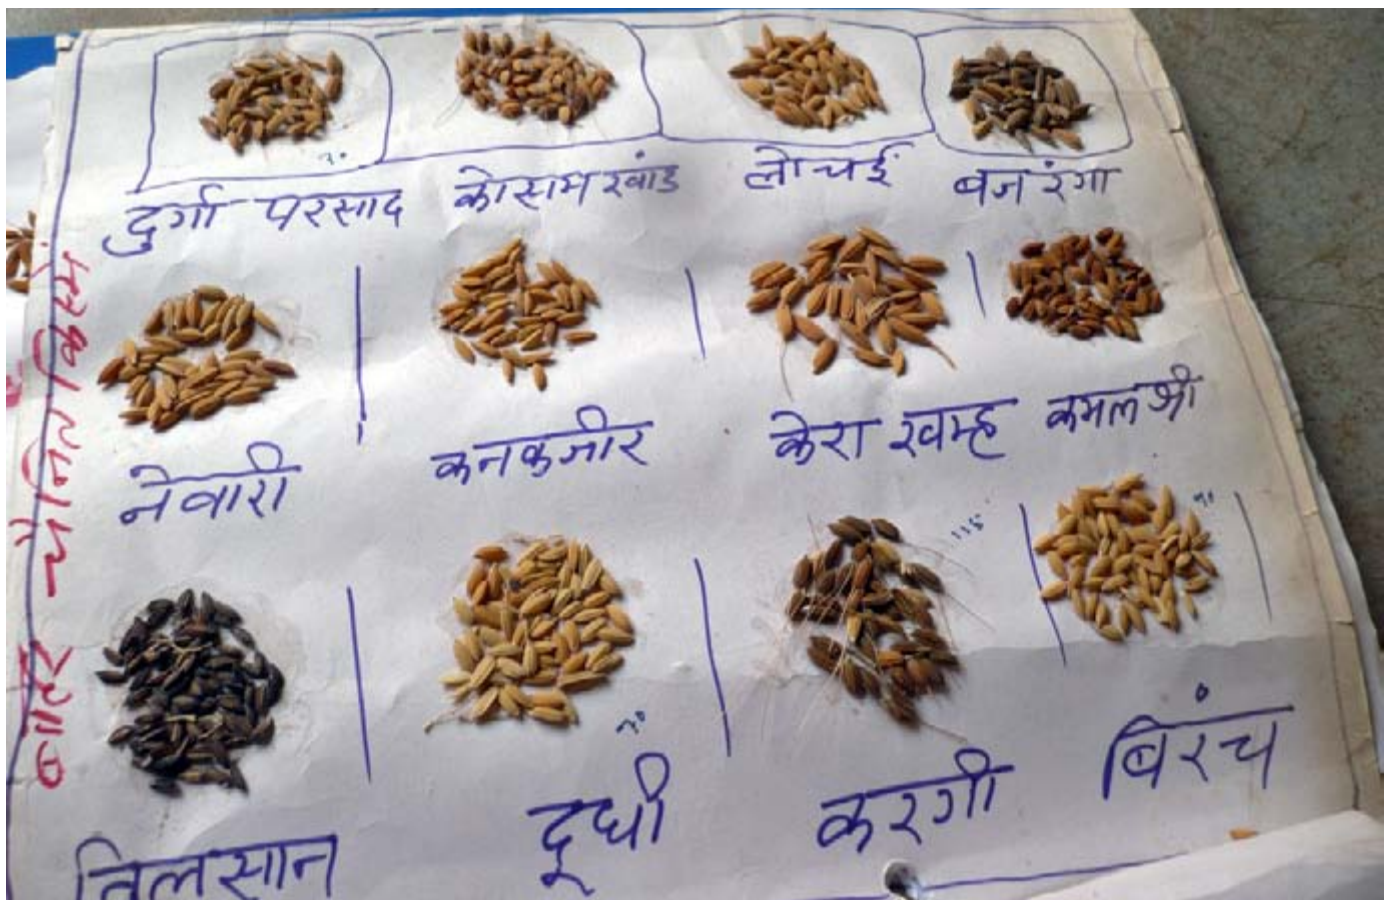 दुर्गा परसाद कोसाम खांड लोचई बजरंगा
नेवारी कनकजीर केरा खम्ह कमल श्री
तिलसान दूधी करगी बिरंच